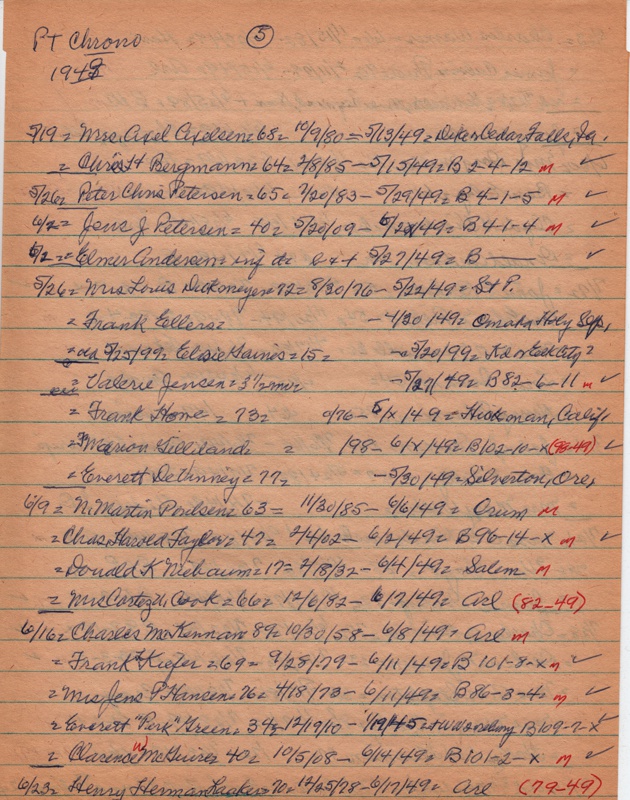 PT Chrono ⑤
1949
5/19 = Mrs. Axel Axelsen = 68 = 10/9/80 – 5/13/49 = Dike, Cedar Falls, Ia.
= Chris H Bergmann = 64 = 2/8/85 – 5/15/49 = B 2-4-12 m ✓
5/26 = Peter Chris Petersen = 65 = 7/20/83 – 5/29/49 = B 4-1-5 m ✓
6/2 = Jens J Petersen = 40 = 5/20/09 – /49 = B 4-1-4 m ✓
5/2 = Elmer Andersen = inf da 5/27/49 = B — ✓
5/26 = Mrs Louis = 72 = 8/30/76 – 5/22/49 = St P.
= Frank Eellers = – 4/30/49 = Omaha, Holy Sep,
= da 5/25/99 = Elsie Gaines = 15 = – 5/20/99 =
= Valerie Jensen = 3 1/2 mo – 5/27/49 = B 82-6-11 m ✓
= Frank Howe = 73 = 0/76 – 5/x/49 = Hickman, Calif
= Marion Gilliland = 198 – 6/x/49 = B 102-10-x (98-49) ✓
= Everett DeVinney = 77 = – 5/30/49 = Silverton, Ore,
6/9 = N. Martin Poulsen = 63 = 11/30/85 – 6/6/49 = Orum m
= Chas. Harold Taylor = 47 = 2/4/02 – 6/2/49 = B 96-14-x m ✓
= Donald K Niebaum = 17 = 2/18/32 – 6/4/49 = Salem m
= Mrs Cortez U. Cook = 66 = 12/6/82 – 6/7/49 = Arl (82-49)
6/16 = Charles McKennan 89 = 10/30/58 – 6/8/49 = Arl m
= Frank Kiefer = 69 = 9/28/79 – 6/11/49 = B 101-8-x m ✓
= Mrs Jens P Hansen = 76 = 4/18/73 – 6/11/49 = B 86-3-4 = m ✓
= Everett "Perk" Green = 34 = 12/19/10 – 1/19/45 = B 109-7-x ✓
= Clarence W McGuire = 40 = 10/5/08 – 6/14/49 = B 101-2-x m ✓
6/23 = Henry Herman = 70 = 12/25/78 – 6/17/49 = Arl (79-49)